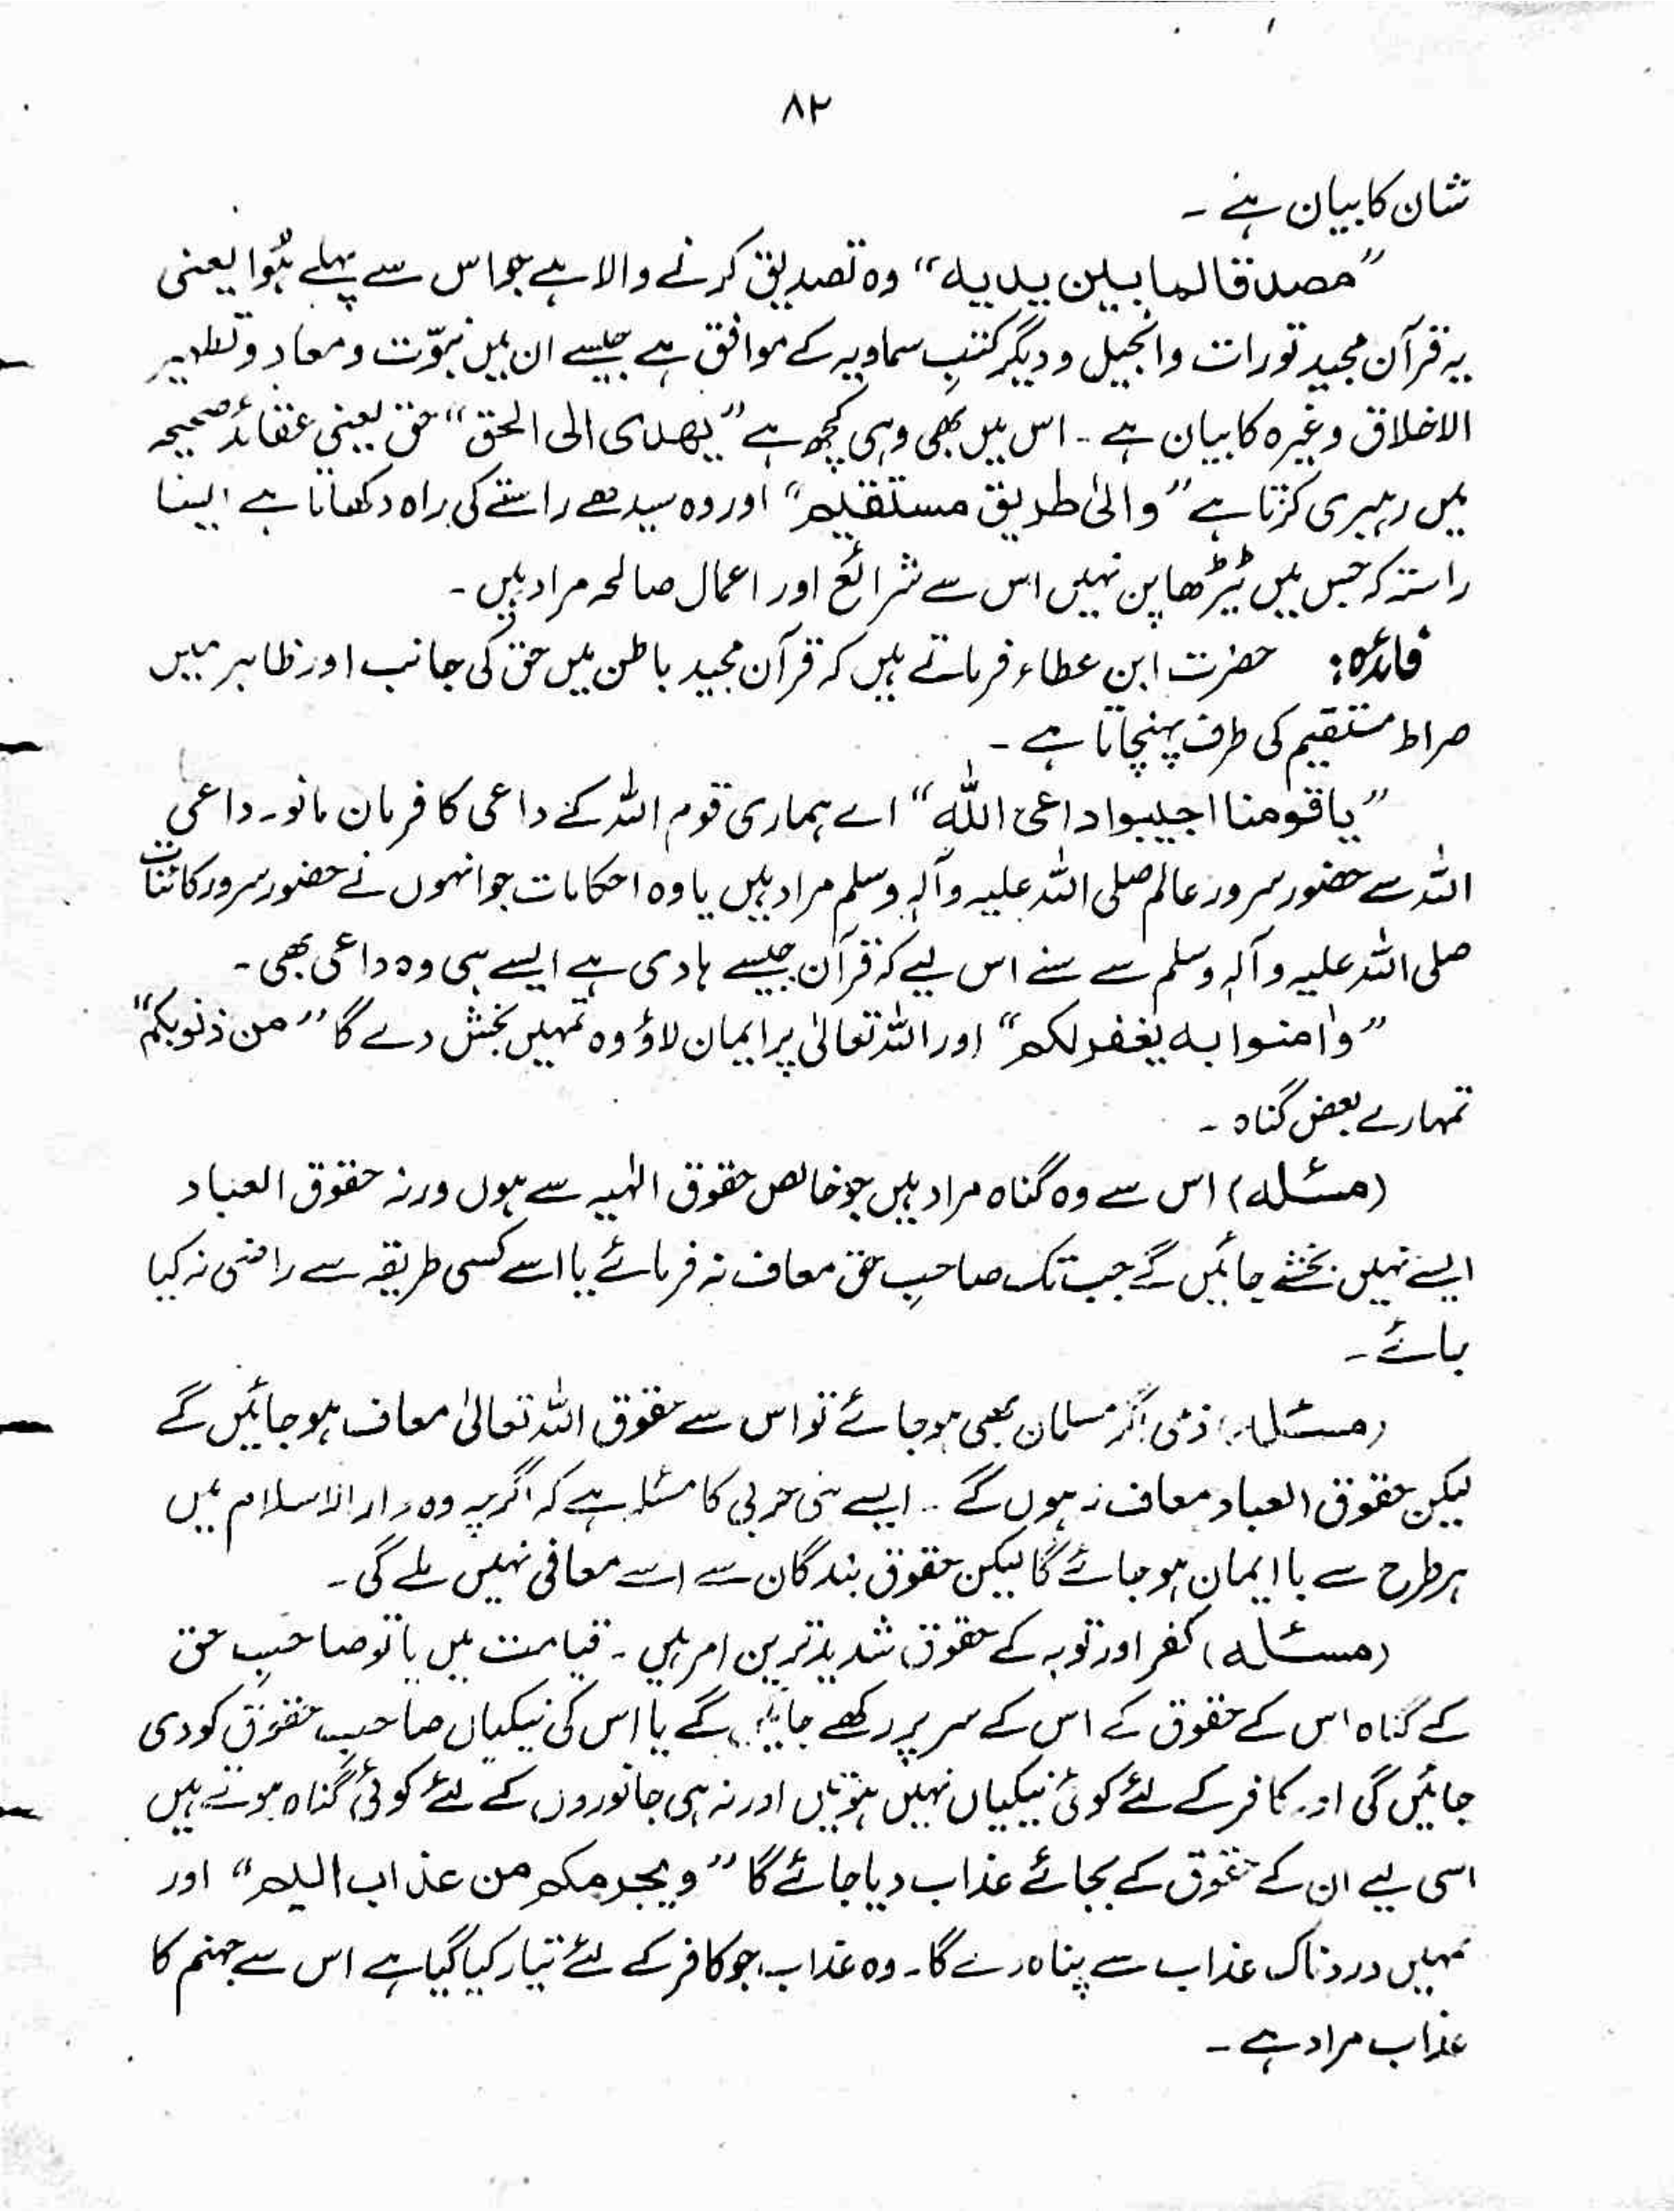 ۸۲
شان کا بیان ہے ۔
”مصدقا لما بین یدیہ“ وہ تصدیق کرنے والا ہے جو اس سے پہلے ہُوا یعنی
یہ قرآن مجید تورات و انجیل و دیگر کتبِ سماویہ کے موافق ہے جیسے ان میں نبوّت و معاد و تطہیر
الاخلاق وغیرہ کا بیان ہے ۔ اس میں بھی وہی کچھ ہے ”یھدی الی الحق“ حق یعنی عقائد صحیحہ
میں رہبری کرتا ہے ”والیٰ طریق مستقیم“ اور وہ سیدھے راستے کی راہ دکھاتا ہے ایسا
راستہ کہ جس میں ٹیڑھا پن نہیں اس سے شرائع اور اعمال صالحہ مراد ہیں ۔
فائدہ: حضرت ابن عطاء فرماتے ہیں کہ قرآن مجید باطن میں حق کی جانب اور ظاہر میں
صراط مستقیم کی طرف پہنچاتا ہے ۔
”یاقومنا اجیبوا داعی اللہ“ اے ہماری قوم اللہ کے داعی کا فرمان مانو۔ داعی
اللہ سے حضور سرور عالم صلی اللہ علیہ وآلہٖ وسلم مراد ہیں یا وہ احکامات جو انہوں نے حضور سرور کائنات
صلی اللہ علیہ وآلہٖ وسلم سے سنے اس لیے کہ قرآن جیسے ہادی ہے ایسے ہی وہ داعی بھی ۔
”واٰمنوا بہ یغفرلکم“ اور اللہ تعالیٰ پر ایمان لاؤ وہ تمہیں بخش دے گا ”من ذنوبکم“
تمہارے بعض گناہ ۔
(مسئلہ) اس سے وہ گناہ مراد ہیں جو خالص حقوق الٰہیہ سے ہوں ورنہ حقوق العباد
ایسے نہیں بخشے جائیں گے جب تک صاحبِ حق معاف نہ فرمائے یا اسے کسی طریقہ سے راضی نہ کیا
جائے ۔
(مسئلہ) ذمی اگر مسلمان بھی ہو جائے تو اس سے حقوق اللہ تعالیٰ معاف ہو جائیں گے
لیکن حقوق العباد معاف نہ ہوں گے ۔ ایسے ہی حربی کا مسئلہ ہے کہ اگرچہ وہ دار الاسلام میں
ہر طرح سے با ایمان ہو جائے گا لیکن حقوق بندگان سے اسے معافی نہیں ملے گی ۔
(مسئلہ) کفر اور توبہ کے حقوق شدید ترین امر ہیں ۔ قیامت میں یا تو صاحبِ حق
کے گناہ اس کے حقوق کے اس کے سر پر رکھے جائیں گے یا اس کی نیکیاں صاحب حقوق کو دی
جائیں گی اور کافر کے لئے کوئی نیکیاں نہیں ہوتیں اور نہ ہی جانوروں کے لئے کوئی گناہ ہوتے ہیں
اسی لیے ان کے حقوق کے بجائے عذاب دیا جائے گا ”ویجرمکم من عذاب الیم“ اور
تمہیں دردناک عذاب سے پناہ دے گا۔ وہ عذاب جو کافر کے لئے تیار کیا گیا ہے اس سے جہنم کا
عذاب مراد ہے ۔